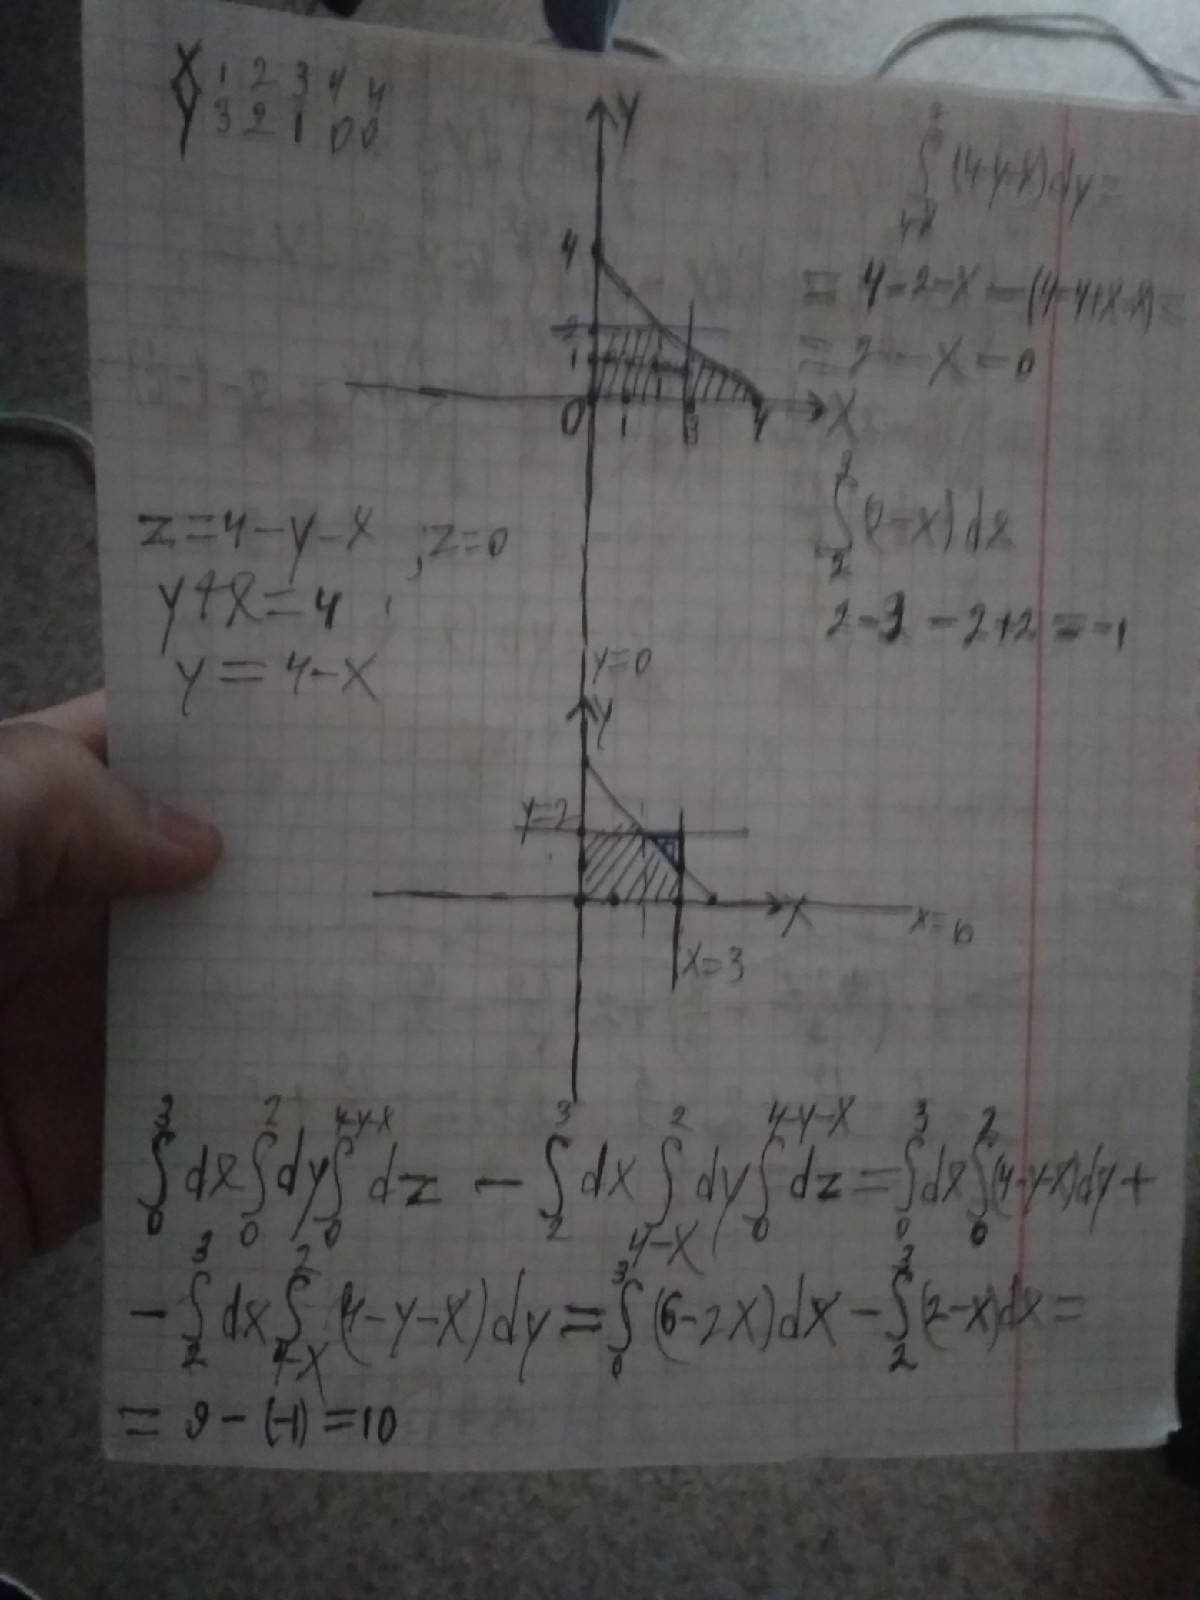 X 1 2 3 4 4
Y 3 2 1 0 0
Y
4
2
1
0 1 3 4 X
∫ (4-y-x)dy =
4-x
= 4-2-x-(4-4+x-x) =
= 2-x-0
3
∫ (2-x)dx
2
2-3-2+2=-1
z=4-y-x , z=0
y+x=4
y=4-x
y=0
Y
y=2
X
x=3
∫₀³ dx ∫₀² dy ∫₀^(4-y-x) dz - ∫₂³ dx ∫_(4-x)² dy ∫₀^(4-y-x) dz = ∫₀³ dx ∫₀² (4-y-x)dy +
- ∫₂³ dx ∫_(4-x)² (4-y-x)dy = ∫₀³ (6-2x)dx - ∫₂³ (2-x)dx =
= 9-(-1)=10